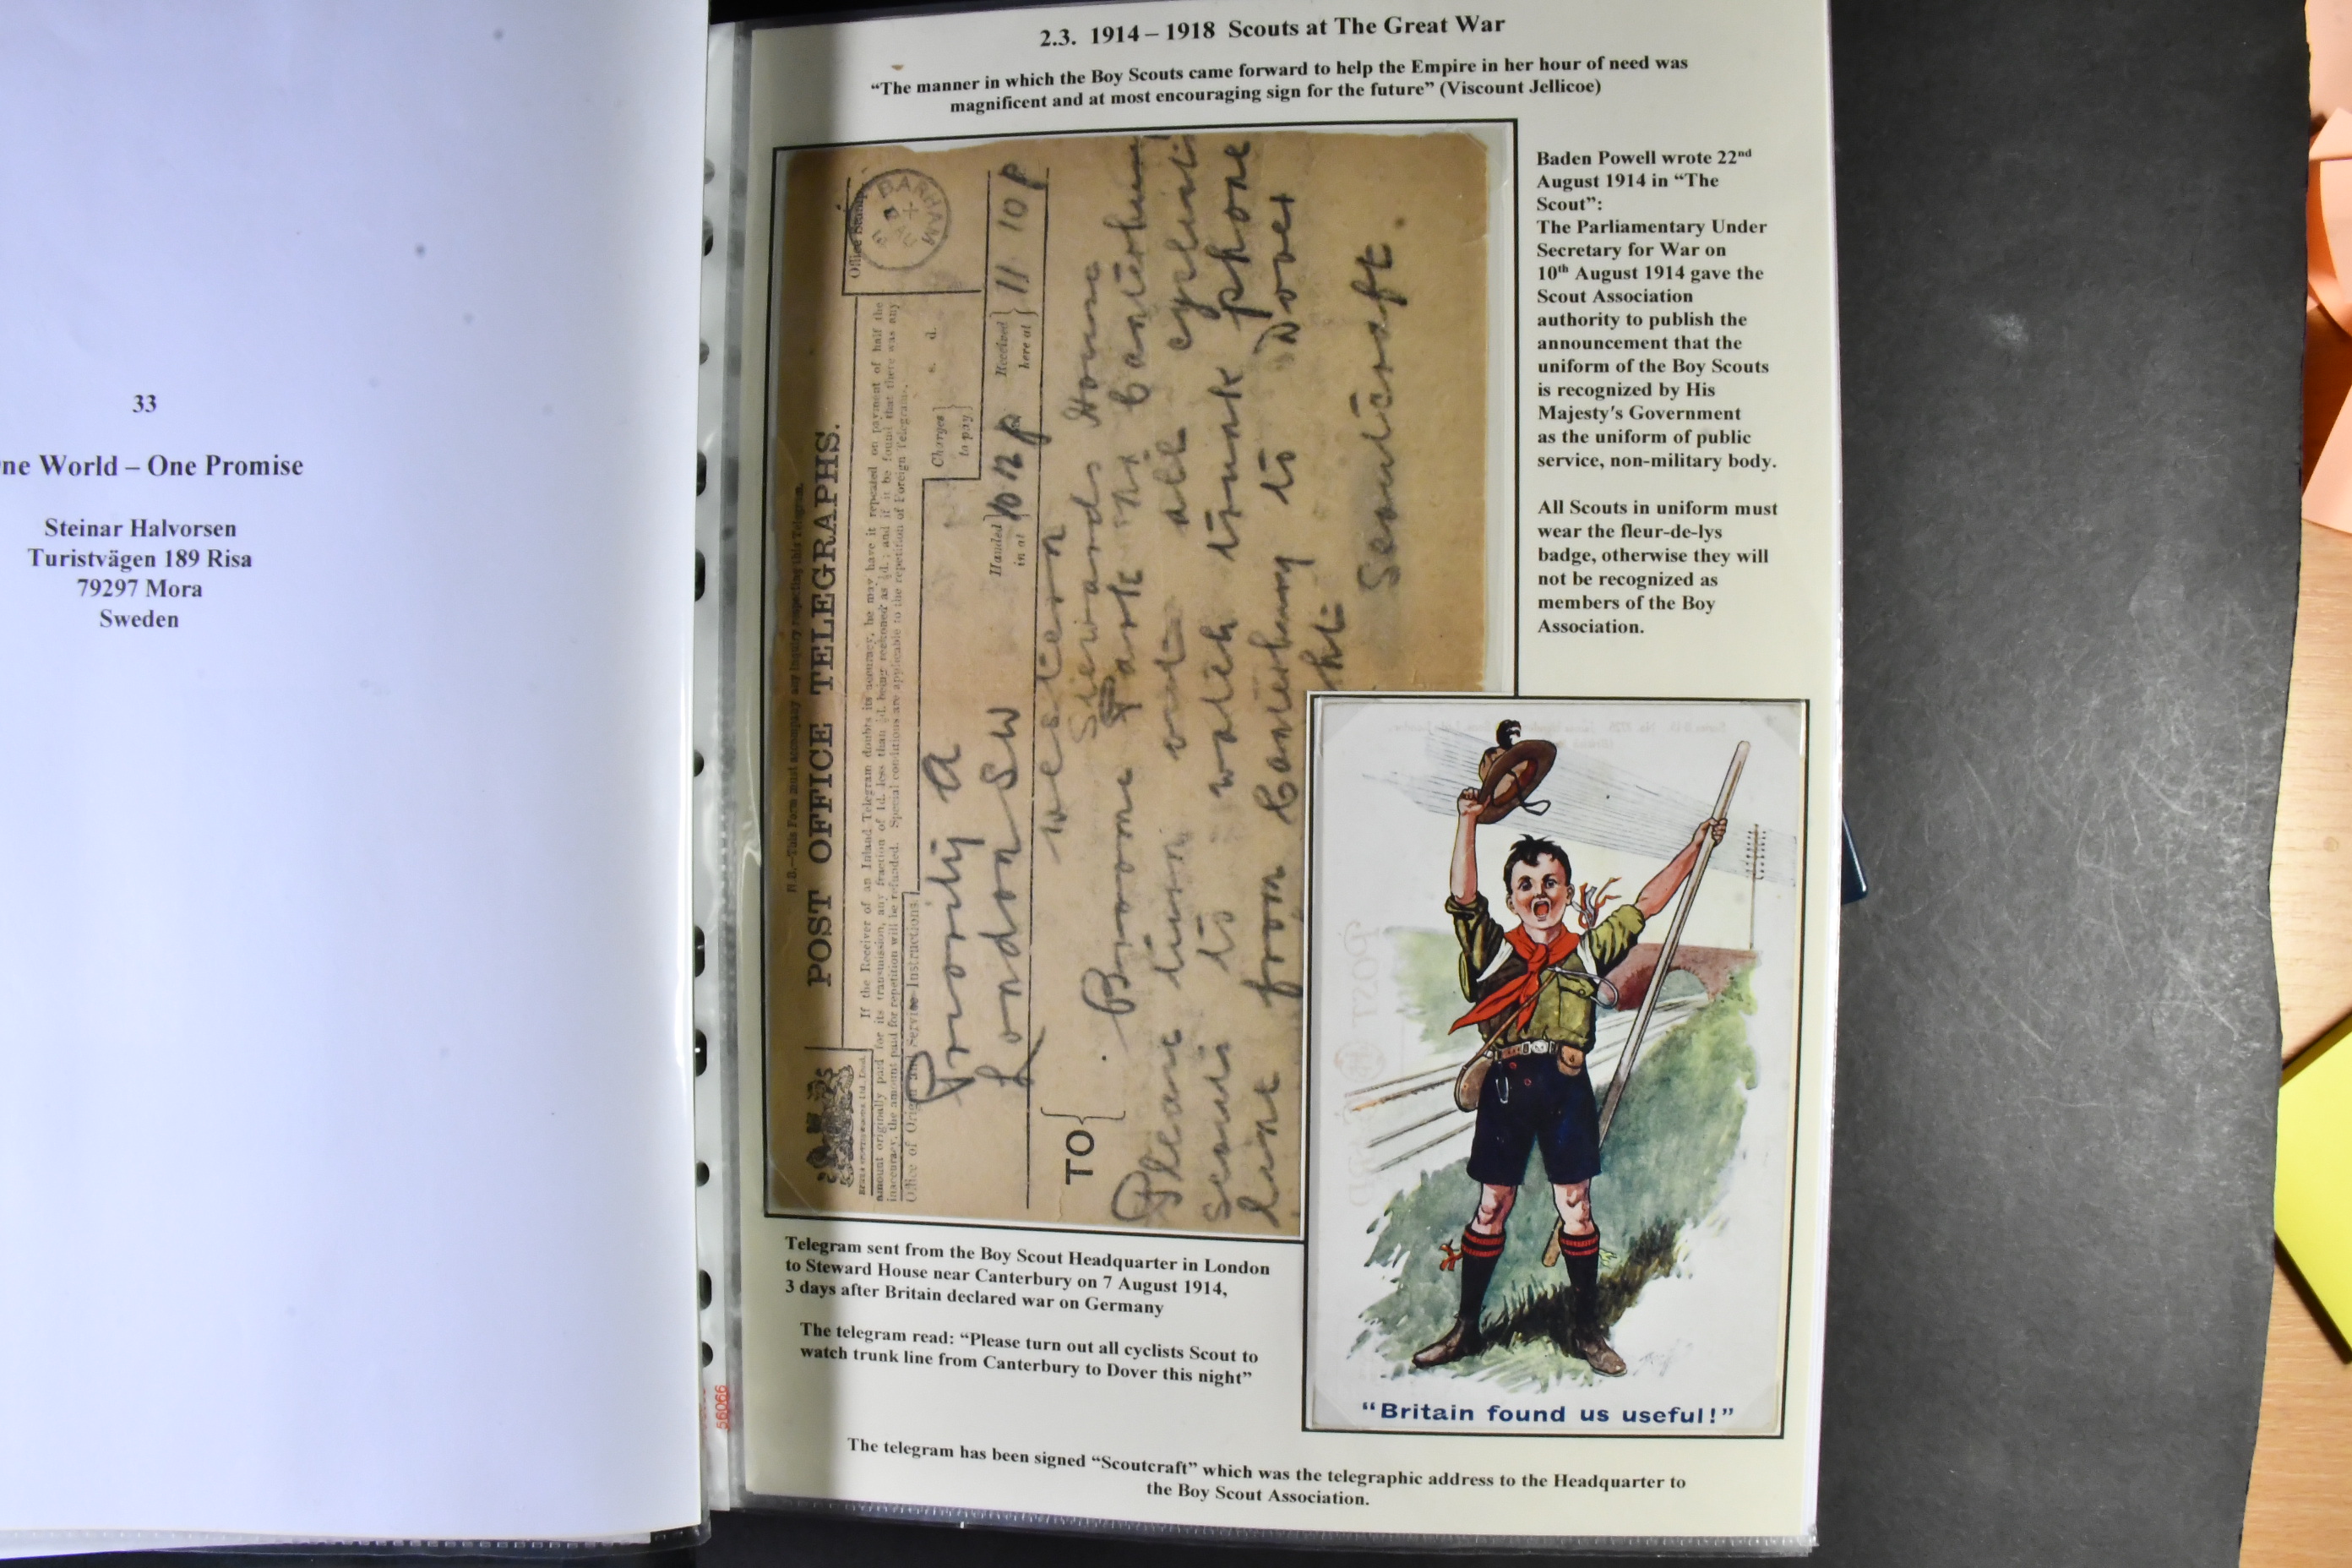 33
ne World – One Promise
Steinar Halvorsen
Turistvägen 189 Risa
79297 Mora
Sweden
56066
2.3. 1914 – 1918 Scouts at The Great War
“The manner in which the Boy Scouts came forward to help the Empire in her hour of need was
magnificent and at most encouraging sign for the future” (Viscount Jellicoe)
N.B.—This Form must accompany any inquiry respecting this Telegram.
POST OFFICE TELEGRAPHS.
If the Receiver of an Inland Telegram doubts its accuracy, he may have it repeated on payment of half the
amount originally paid for its transmission, any fraction of 1d. less than ½d. being reckoned as ½d.; and if it be found that there was any
inaccuracy, the amount paid for repetition will be refunded. Special conditions are applicable to the repetition of Foreign Telegrams.
Office of Origin and Service Instructions.
Office Stamp
BARHAM
AU
Charges to pay
s. d.
Priority A
London SW
Handed in at
10 12 p
Received here at
11 10 p
TO
western
Stewards House
Broome Park Nr Canterbury
Please turn out all cyclist
scouts to watch trunk phone
line from Canterbury to Dover
ht
Scoutcraft.
Baden Powell wrote 22nd
August 1914 in “The
Scout”:
The Parliamentary Under
Secretary for War on
10th August 1914 gave the
Scout Association
authority to publish the
announcement that the
uniform of the Boy Scouts
is recognized by His
Majesty's Government
as the uniform of public
service, non-military body.
All Scouts in uniform must
wear the fleur-de-lys
badge, otherwise they will
not be recognized as
members of the Boy
Association.
Telegram sent from the Boy Scout Headquarter in London
to Steward House near Canterbury on 7 August 1914,
3 days after Britain declared war on Germany
The telegram read: “Please turn out all cyclists Scout to
watch trunk line from Canterbury to Dover this night”
“Britain found us useful!”
The telegram has been signed “Scoutcraft” which was the telegraphic address to the Headquarter to
the Boy Scout Association.